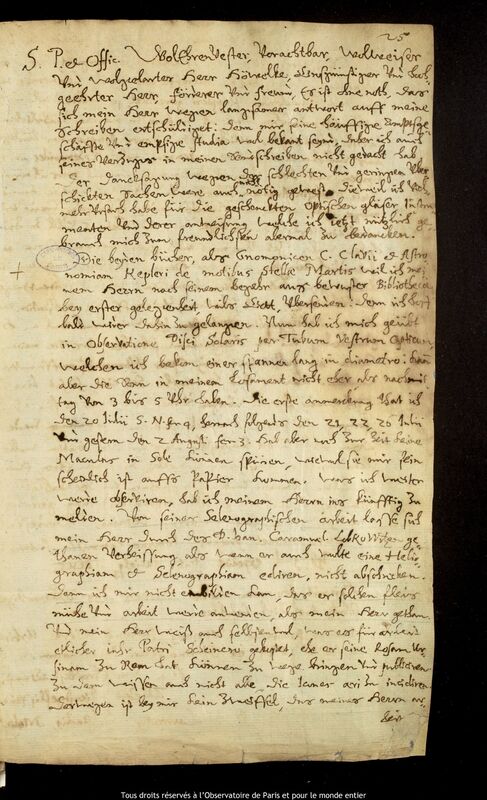 25
S. P. et Offic. WolEhrenVester, Vorachtbar, Wolweiser
Und Wolgelarter Herr Höwelke, Hochg
geehrter Herr, förderer Und freund, Es ist ohne noth, das
sich mein Herr wegen langsamer antwort auff meine
schreiben entschüldiget: denn mir seine häuffige
schäffte Und embsige studia wol bekant seyn, daher ich auch
seines Verzugs in meinen schreiben nicht gedacht hab.
Der dancksagung wegen der schlechten Und geringen Vber
schickten sachen were auch nötig gewest, dieweil ich Vil
mehr Vrsach habe für die geschenckten Optischen gläser Instru
menten Und derer welche ich jetzt nützlich ge
brauch mich zum freundlichsten abermal zu bedancken.
Die beyden bücher, als Gnomonicen C. Clavii et Astro
nomiam Kepleri de motibus Stellæ Martis wil ich mei
nem Herrn nach seinem begehr aus bewuster Bibliotheca
bey erster gelegenheit, wils Gott, Vbersenden: denn ich hoff
bald wider dahin zu gelangen. Nun hab ich mich geübt
in Observatione Disci Solaris per Tubum Vestrum Opticum,
welchen ich bekom einer spannen lang in diametro: kan
aber die Sonn in meinem Losament nicht eher als nachmit
tag Von 3 bis 5 Vhr haben. Die erste anmerckung that ich
den 20 Iulii S. N. hernach folgends den 21, 22, 26 Iulii
Und gestern den 2 Augusti Hab aber noch zur Zeit keine
Maculas in Sole können spüren, wiewol sie mir sein
scheinlich ist auffs Papier kommen. Was ich weiter
werde hab ich meinem Herrn ins künfftig zu
melden. Von seiner Selenographischen arbeit lasse sich
mein Herr durch des D. Iohan. Caramuel Lobkowitzen ge
thanen Verheissung, als wenn er auch wolte eine Helio
graphiam et Selenographiam ediren, nicht abschrecken.
Denn ich mir nicht einbilden kan, das er solchen fleis
mühe Und arbeit werde anwenden, als mein Herr gethan.
Und mein Herr weiß auch selbsten wol, was es für arbeit
etlicher jahr Patri Scheinero gekostet, ehe er seine Rosam Ur
sinam zu Rom hat können zu wege bringen Und publiciren.
Zu dem wissen auch nicht alle, die Icones æri zu incidiren.
Derwegen ist bey mir kein Zweiffel, das meines Herrn ar
beit
Tous droits réservés à l'Observatoire de Paris et pour le monde entier